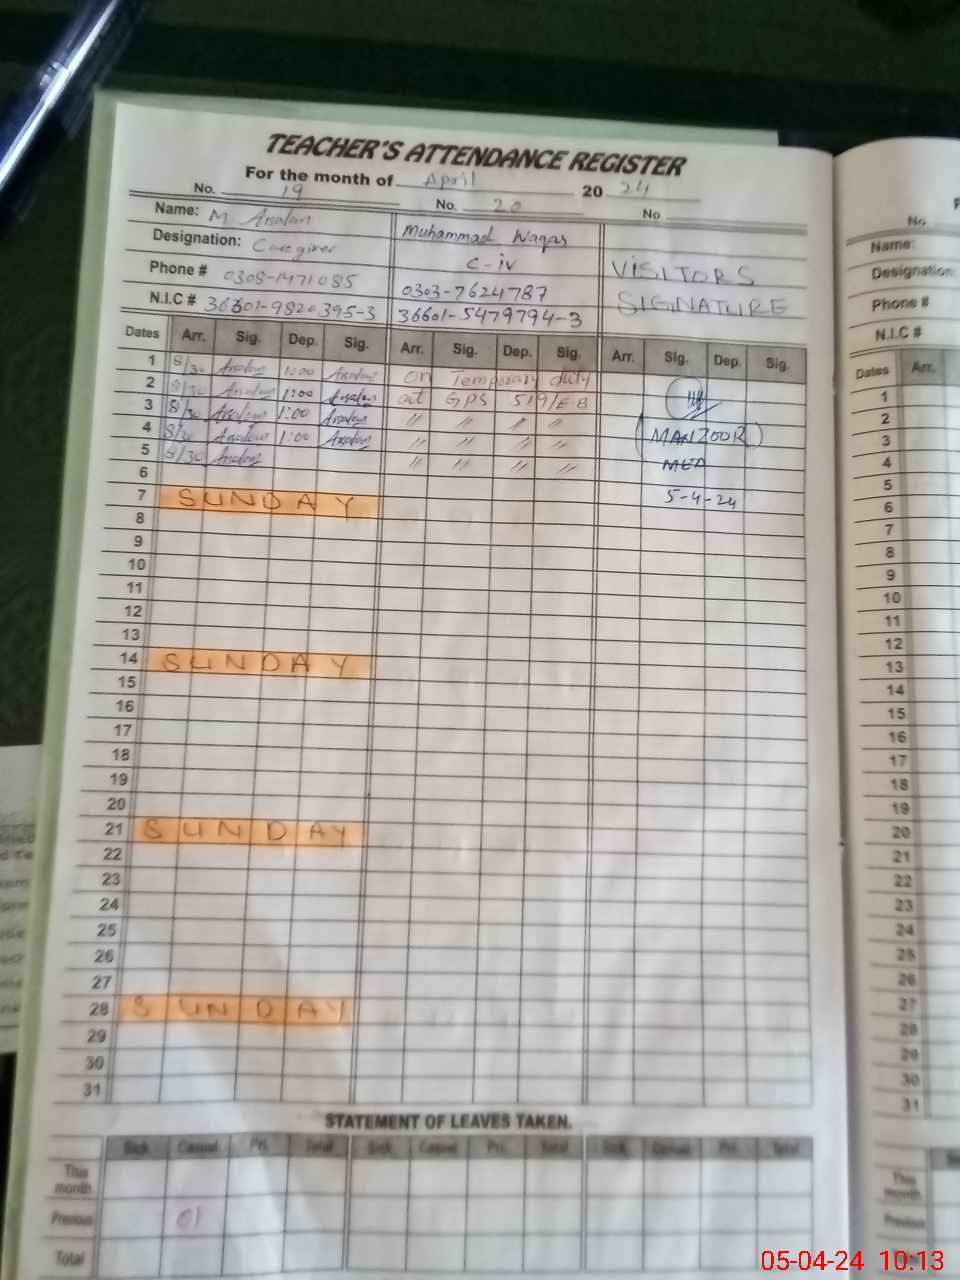 TEACHER'S ATTENDANCE REGISTER
For the month of April 20 24
No. 19 No. 20 No
Name: M Arsalan Muhammad Waqas
Designation: Caregiver C-iv VISITORS
Phone # 0308-1471085 0303-7624787 SIGNATURE
N.I.C # 36301-9820395-3 36601-5479794-3
Dates Arr. Sig. Dep. Sig. Arr. Sig. Dep. Sig. Arr. Sig. Dep. Sig.
1 8/30 Arsalan 1:00 Arsalan on Temporary duty
2 8/30 Arsalan 1:00 Arsalan at GPS 519/EB
3 8/30 Arsalan 1:00 Arsalan " " " "
4 8/30 Arsalan 1:00 Arsalan " " " " (MANZOOR)
5 8/30 Arsalan " " " " MEA
6 5-4-24
7 SUNDAY
8
9
10
11
12
13
14 SUNDAY
15
16
17
18
19
20
21 SUNDAY
22
23
24
25
26
27
28 SUNDAY
29
30
31
STATEMENT OF LEAVES TAKEN.
Sick Casual Pri. Total Sick Casual Pri. Total Sick Casual Pri. Total
This month
Previous 01
Total
No.
Name:
Designation:
Phone #
N.I.C #
Dates Arr.
1
2
3
4
5
6
7
8
9
10
11
12
13
14
15
16
17
18
19
20
21
22
23
24
25
26
27
28
29
30
31
This month
Previous
05-04-24 10:13